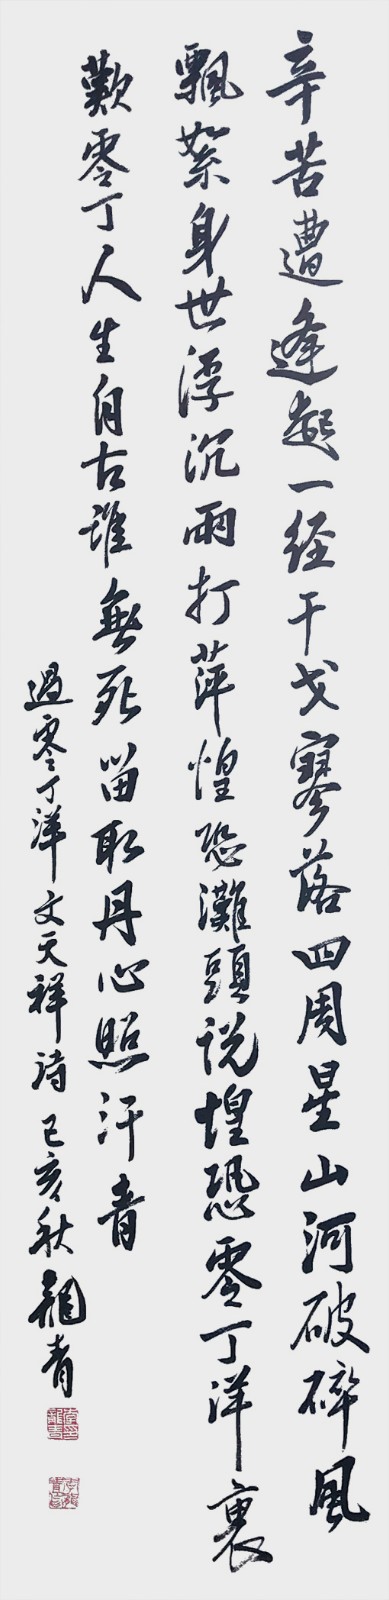 辛苦遭逢起一经干戈寥落四周星山河破碎风
飄絮身世浮沉雨打萍惶恐灘頭说惶恐零丁洋裏
歎零丁人生自古誰無死留取丹心照汗青
過零丁洋文天祥诗己亥秋龍青